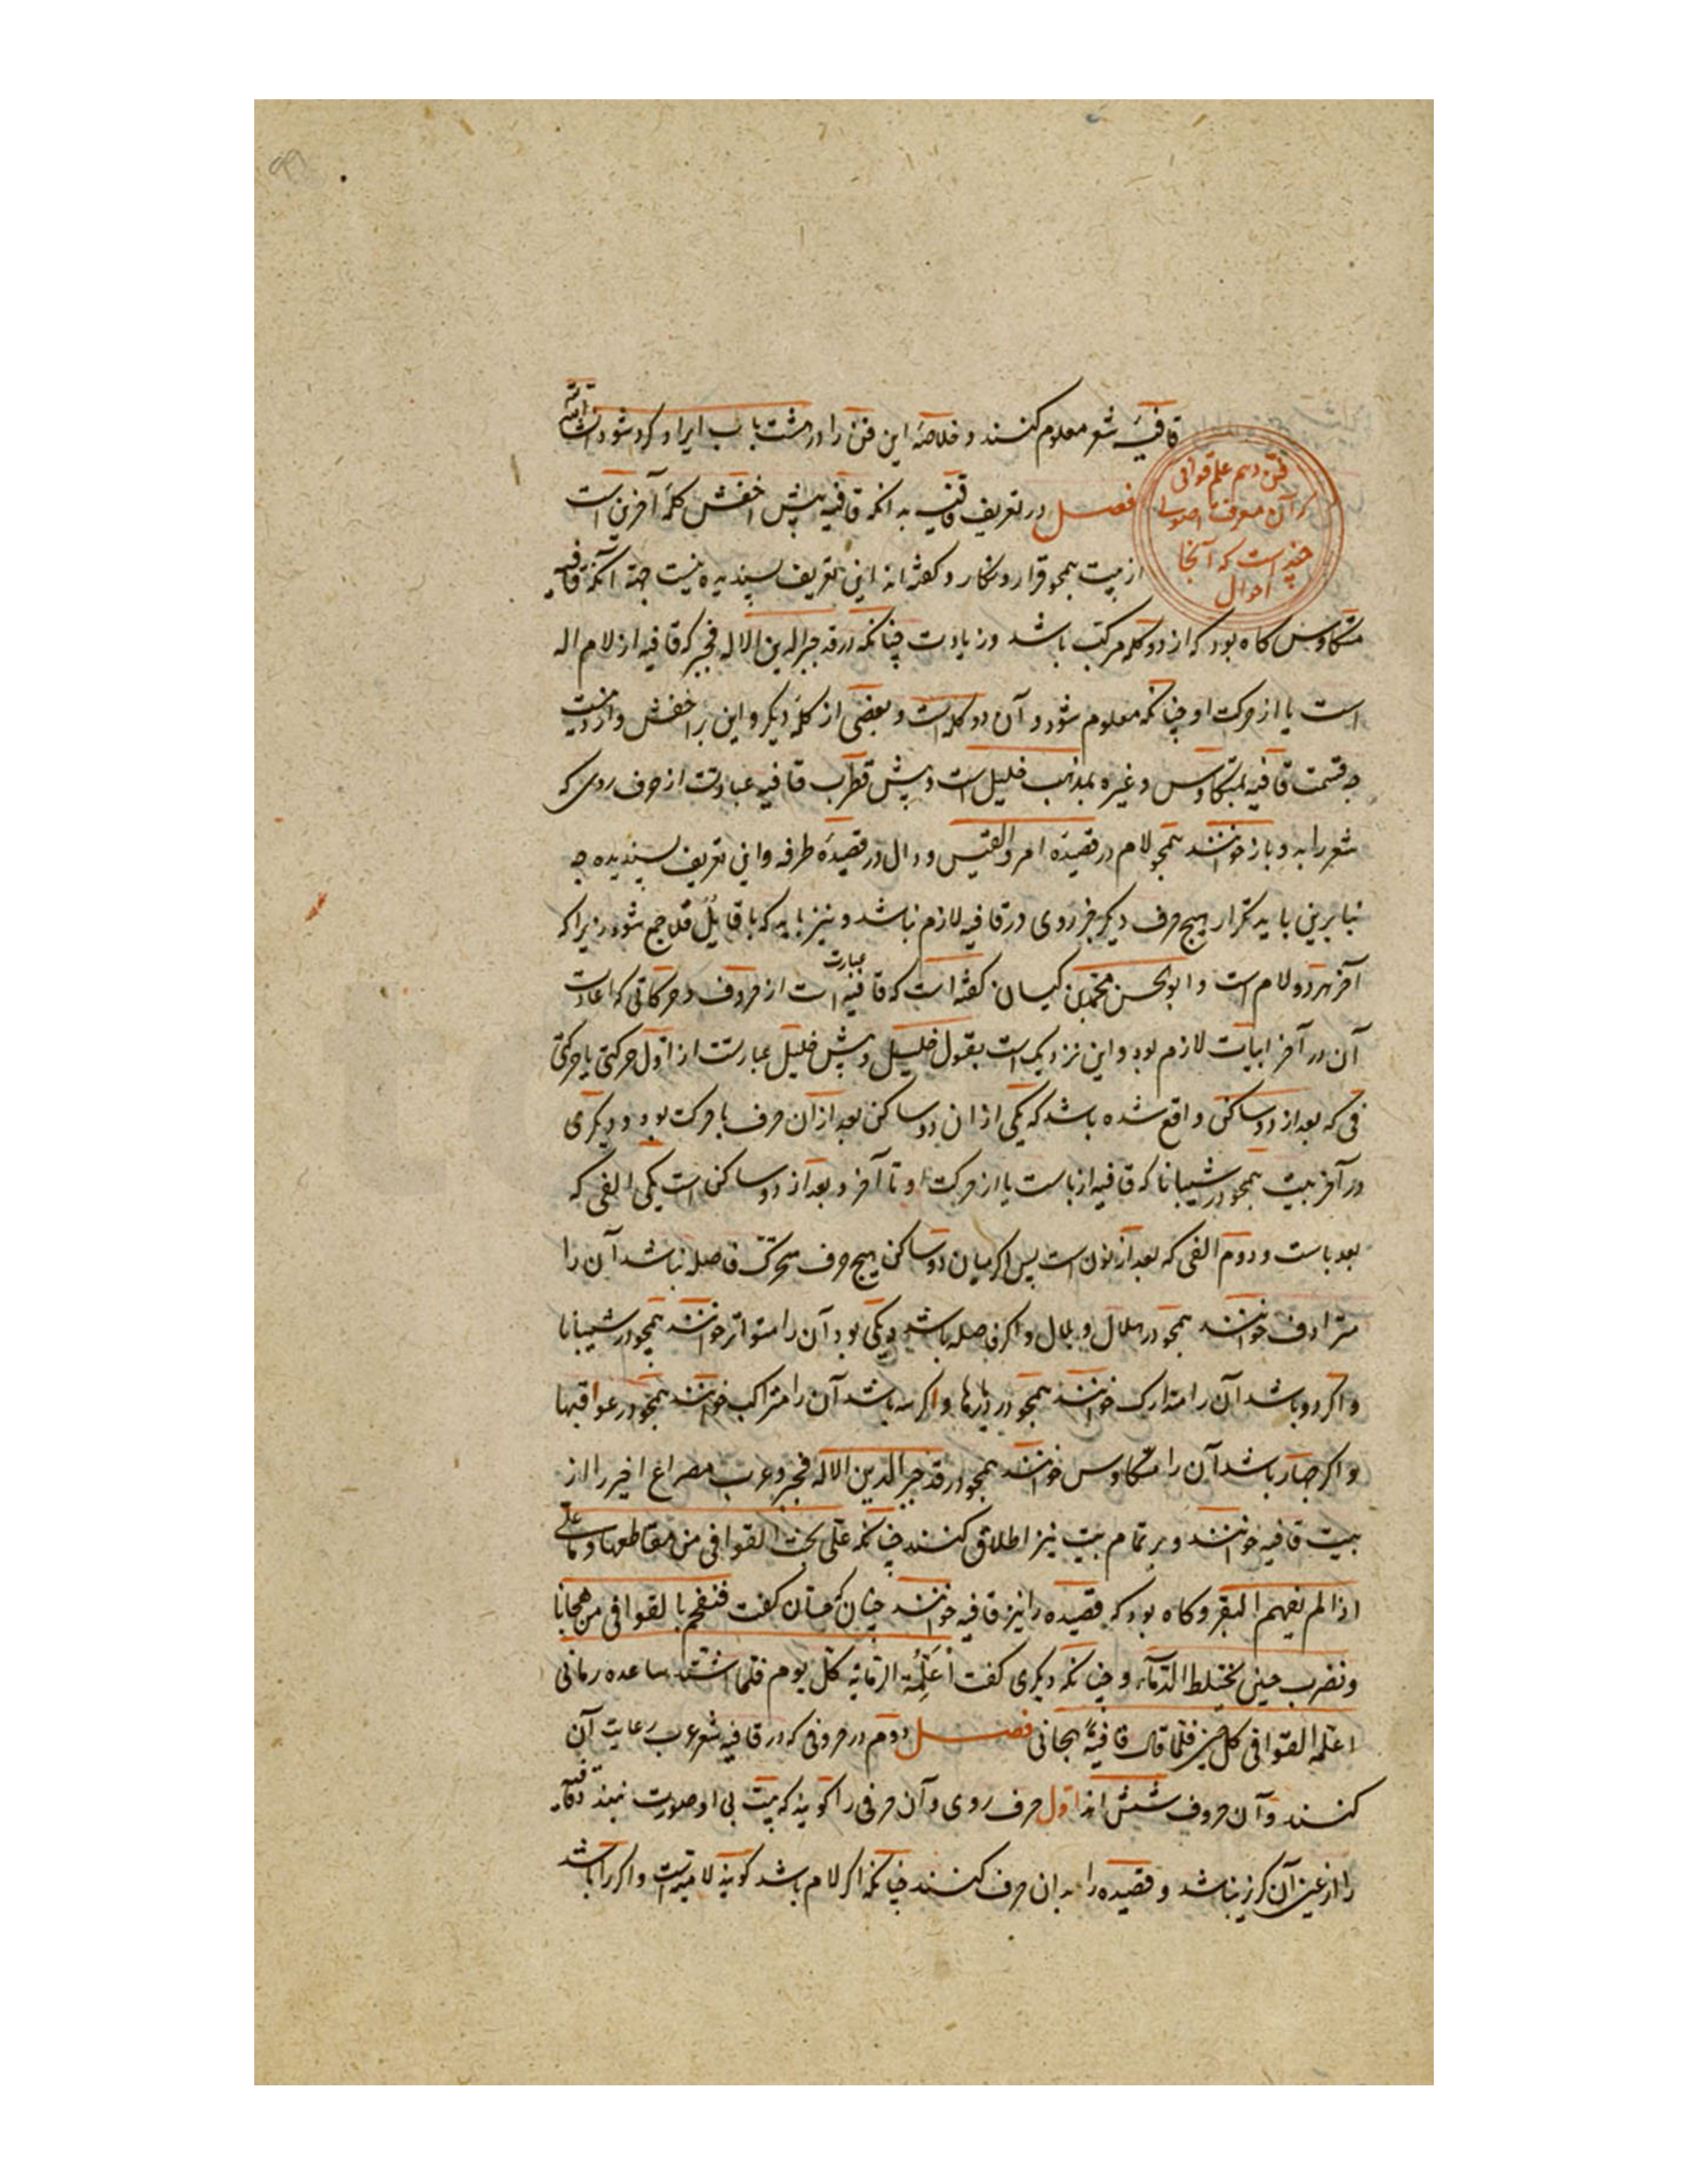 فن دهم علم قوافی
و آن معرفت اصولی
چند است که از آنجا
احوال
قافیه شعر معلوم کنند و خلاصه این فن را در هشت باب ایراد کرده شود ان شاء الله
فصل در تعریف قافیه بدانکه قافیه پیش اخفش کلمه آخرین است
از بیت همچو قرار و نگار و گفته‌اند این تعریف پسندیده نیست جهة آنکه قافیه
متکاوس گاه بود که از دو کلمه مرکب باشد و زیادت چنانکه در قد جبر الدین الاله فجبر که قافیه از لام اله
است یا از حرکت او چنانکه معلوم شود و آن دو کلمه است و بعضی از کلمه دیگر و این بر اخفش وارد نیست
چه قسمت قافیه بمتکاوس و غیره بمذهب خلیل است و پیش قطرب قافیه عبارتست از حرف روی که
شعر را بدو باز خوانند همچو لام در قصیده امرؤ القیس و دال در قصیده طرفه و این تعریف پسندیده چه
بنابرین باید تکرار هیچ حرف دیگر جز روی در قافیه لازم نباشد و نیز باید که با قایل قلا جمع شود زیرا که
آخر هر دو لام است و ابو الحسن محمد بن کیسان گفته است که قافیه عبارت است از حروف و حرکاتی که اعادت
آن در آخر ابیات لازم بود و این نزدیک است بقول خلیل و پیش خلیل عبارتست از اول حرکتی یا حرکتی
فی که بعد از دو ساکن واقع شده باشد که یکی از ان دو ساکن بعد از آن حرف با حرکت بود و دیگری
در آخر بیت همچو در شیبانا که قافیه از باست یا از حرکت او تا آخر و بعد از دو ساکن است یکی الفی که
بعد باست و دوم الفی که بعد از نون است پس اگر میان دو ساکن هیچ حرف متحرک فاصله نباشد آن را
مترادف خوانند همچو در هلال و بلال و اگر فاصله باشد و یکی بود آن را متواتر خوانند همچو در شیبانا
و اگر دو باشد آن را متدارک خوانند همچو در دیارها و اگر سه باشد آن را متراکب خوانند همچو در عواقبها
و اگر چهار باشد آن را متکاوس خوانند همچو در قد جبر الدین الاله فجبر و عرب مصراع اخیر را از
بیت قافیه خوانند و بر تمام بیت نیز اطلاق کنند چنانکه علی نحت القوافی من مقاطعها و ما علی
اذا لم یفهم البقر و گاه بود که قصیده را نیز قافیه خوانند چنان که حسان گفت فنفحم بالقوافی من هجانا
و نضرب حین یختلط الدماء و چنانکه دیگری گفت اعلمه الرمایه کل یوم فلما اشتد ساعده رمانی
اعلمه القوافی کل حین فلما قال قافیة هجانی فصل دوم در حروفی که در قافیه شعر عرب رعایت آن
کنند و آن حروف شش‌اند اول حرف روی و آن حرفی را گویند که بیت بی او صورت نبندد و قافیه
را از عین آن گریز نباشد و قصیده را بدان حرف کنند چنانکه اگر لام باشد گویند لامیه است و اگر را باشد